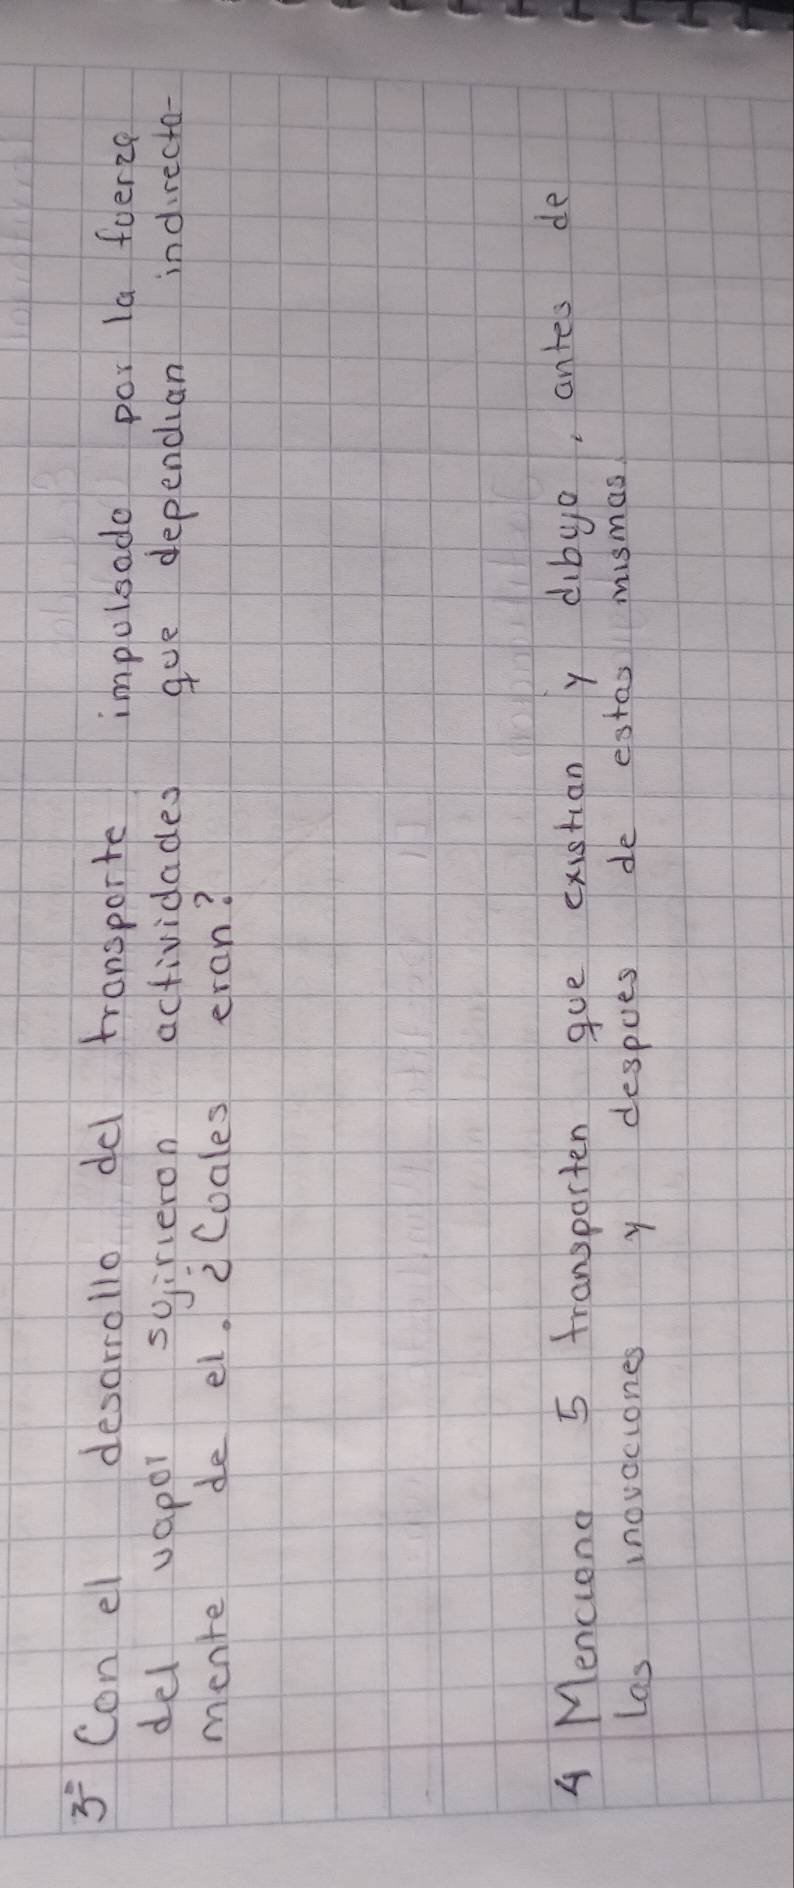 3- Con el desarrollo del transporte impulsado por la fuerza
del vapor sujirieron actividades que dependian indirecta-
mente de el. ¿Cuales eran?
4 Menciona 5 transporten que existian y dibuja, antes de
Las inovaciones y despues de estas mismas.